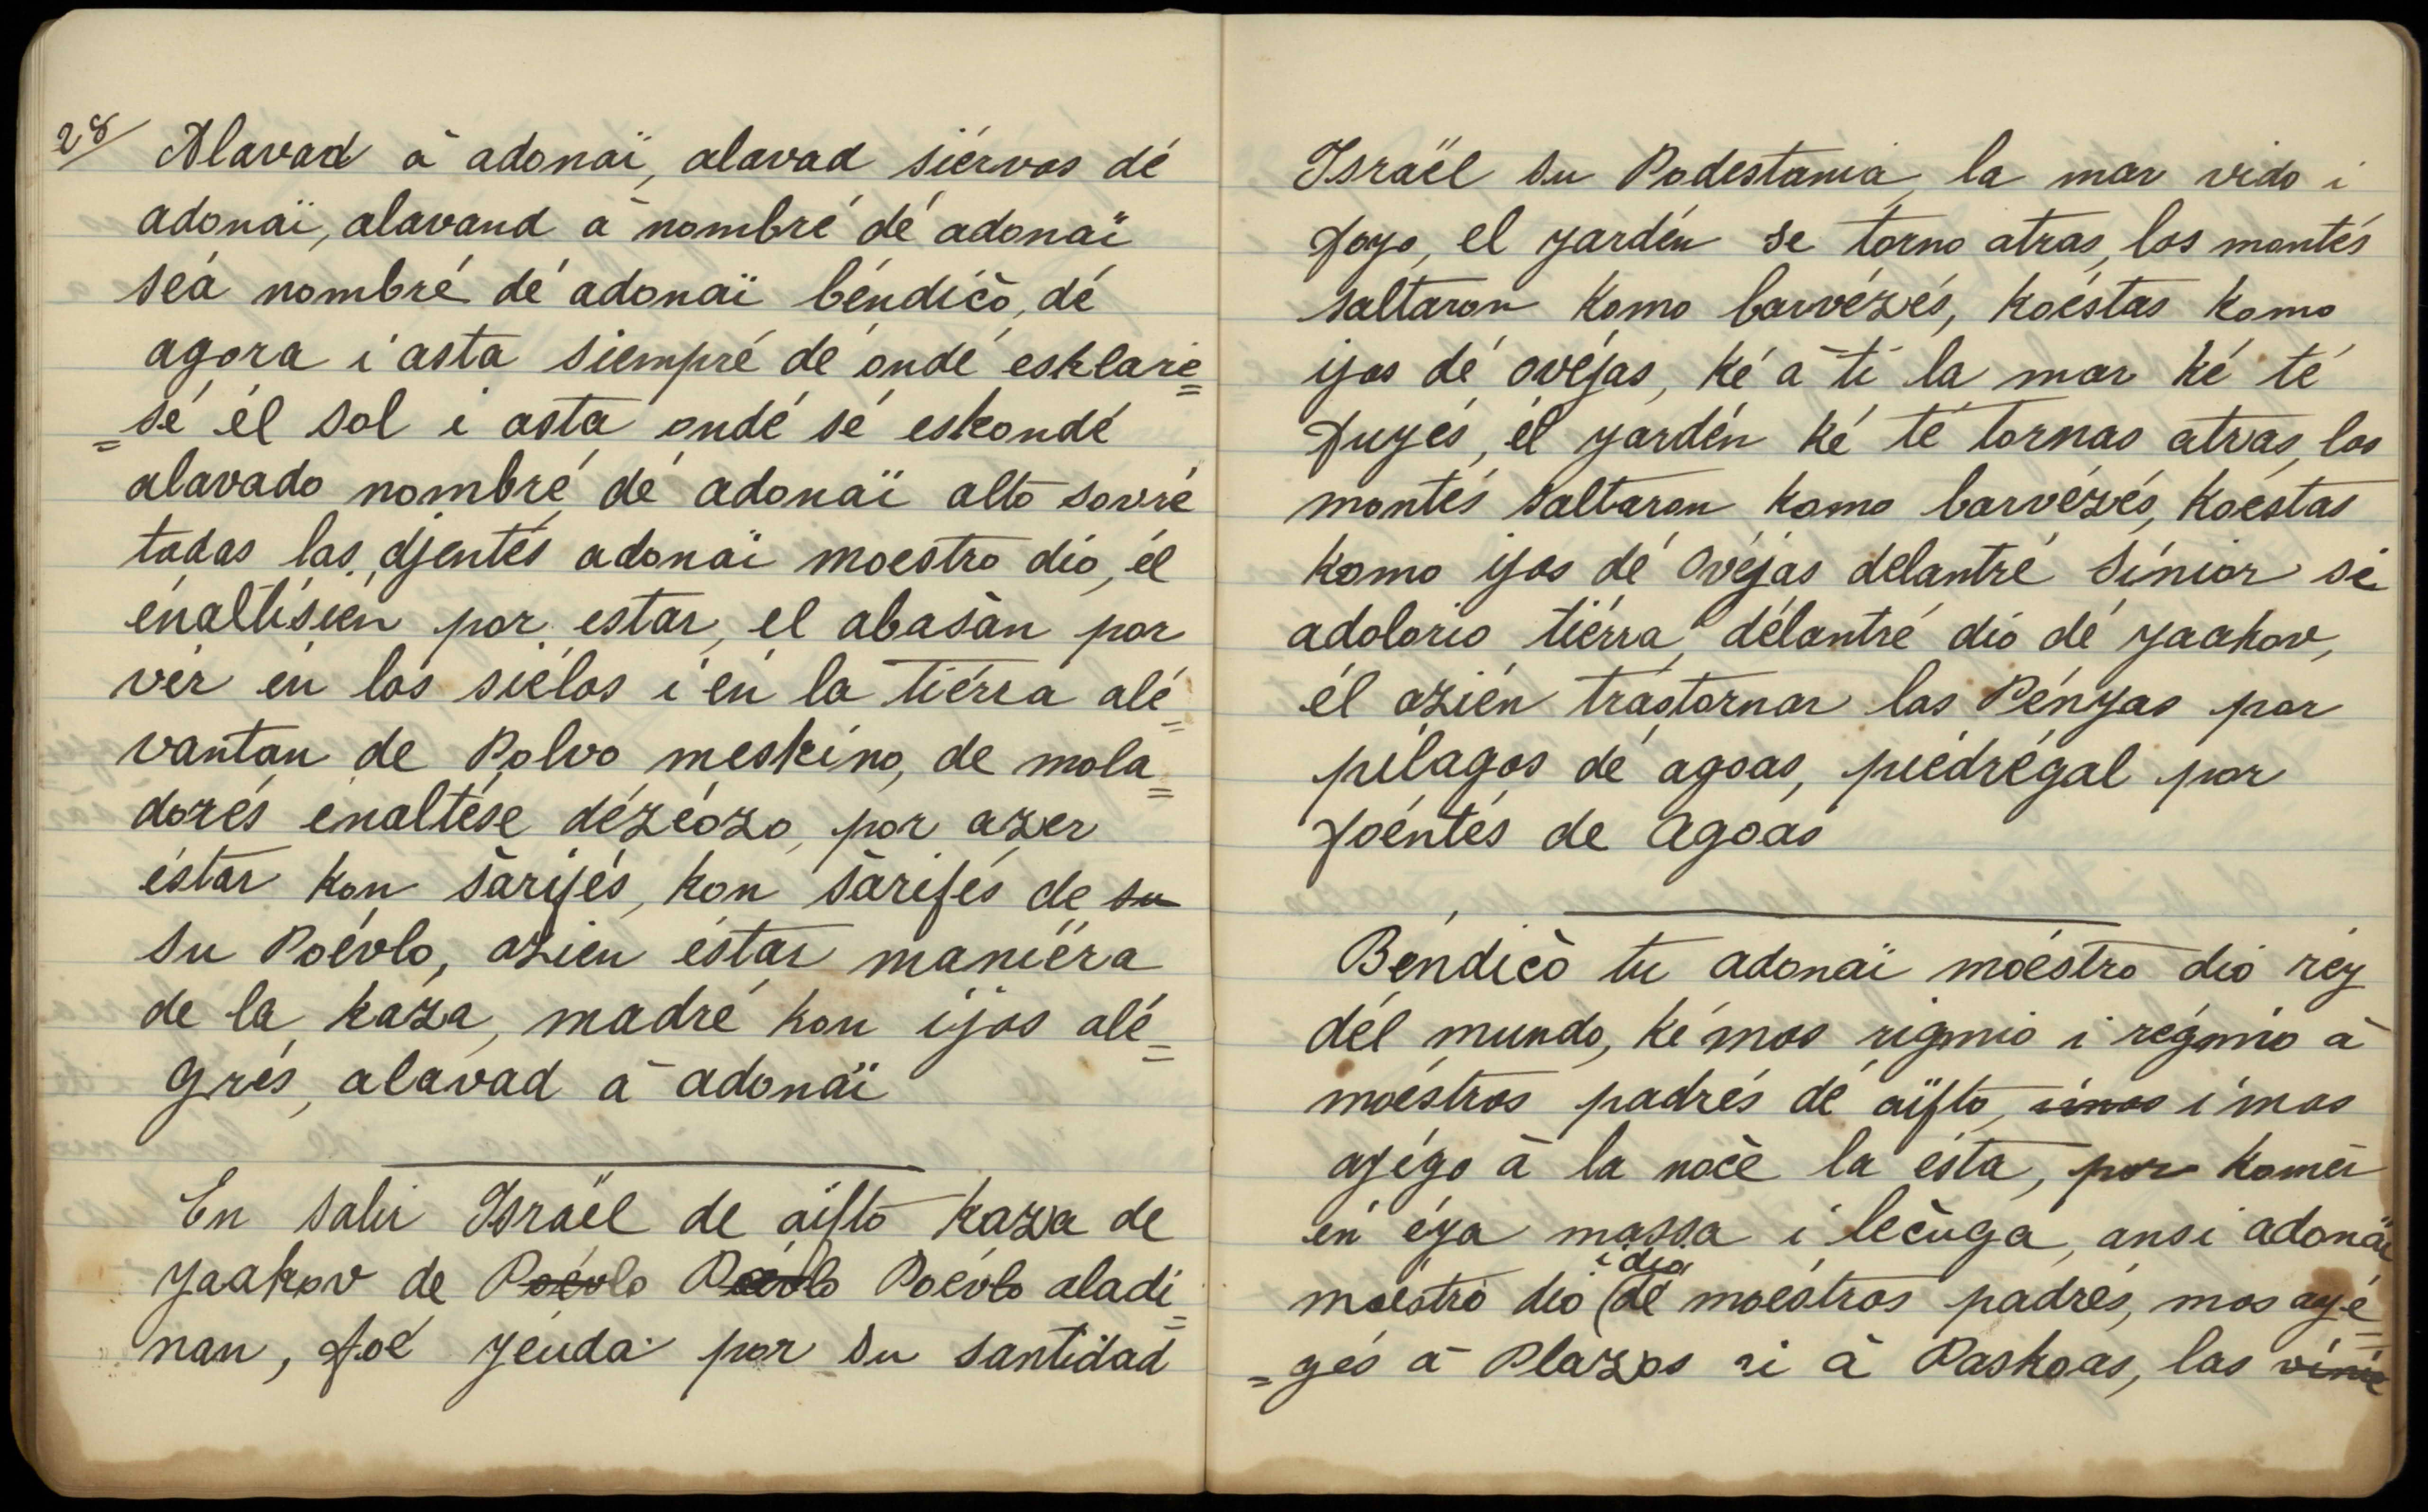 28/ Alavad à adonaï, alavad siérvos dé
adonaï, alavand à nombré dé adonaï
séa nombré dé adonaï béndic̀o, dé
agora i asta siempré dé ondé esklare=
=sé él sol i asta ondé sé eskondé
alavado nombré dé adonaï alto sovré
todas las djentés adonaï moestro dio, él
énaltisién por estar, el abas̀àn por
vér én los siélos i én la tiérra alé=
vantan de Polvo meskino, de mola=
dorés énaltése dézéozo, por azer
éstar kon s̀arifés, kon s̀arifés de su
su Poévlo, azien éstar maniéra
de la kaza, madré kon ijos alé=
grés, alavad à adonaï
En salir Israël de aïfto kaza de
yaakov de Poévlo Poévlo Poévlo aladi=
nan, foé yéuda por su santidad
Israël su Podestania, la mar vido i
foyo, el yardén se torno atras, los montés
saltaron komo barvézés, koéstas komo
ijos dé ovéjas, ké à ti la mar ké té
fuyés, él yardén ké té tornas atras, los
montés saltaron komo barvézés, koéstas
komo ijos dé ovéjas delantré sinior sé
adolorio tiérra, délantré dio dé yaakov,
él azién trastornar las Pényas por
pilagos dé agoas, piédrégal por
foéntés de agoas
Béndic̀o tu adonaï moéstro dio réy
dél mundo, ké mos rigmio i régmio à
moéstros padrés dé aïfto, imos i mos
ayégo à la noc̀é la ésta, por komér
én éya massa i léc̀uga, ansi adonaï
i dio
moéstro dio (dé moéstros padrés, mos ayé=
=gés à Plazos i à Paskoas, las vinié